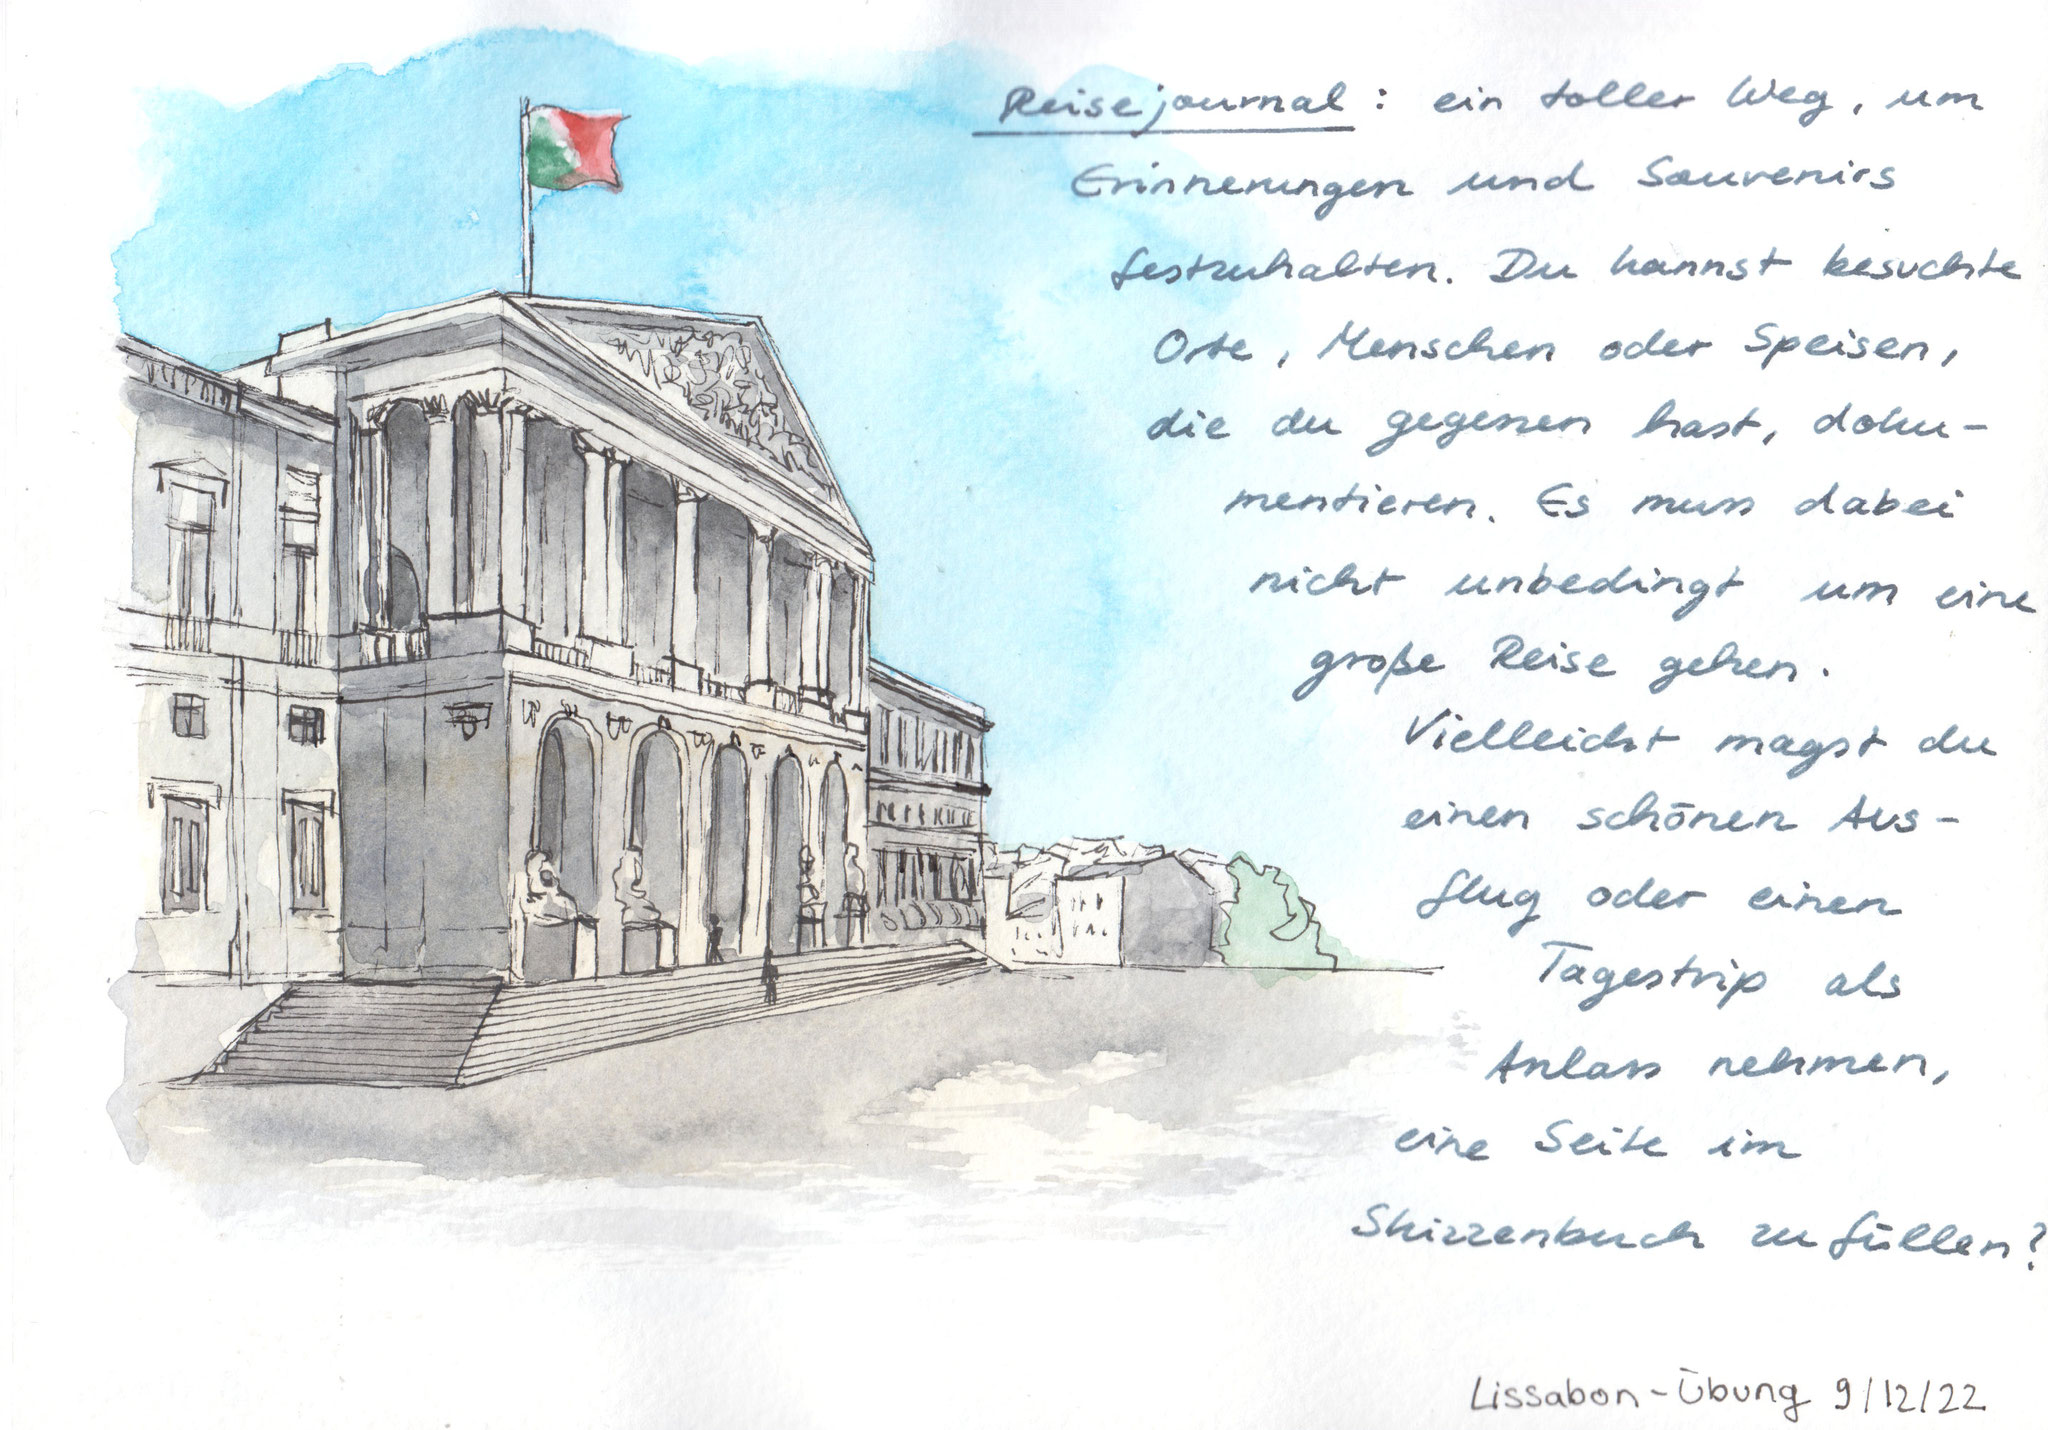 Reisejournal: ein toller Weg, um
Erinnerungen und Souvenirs
festzuhalten. Du kannst besuchte
Orte, Menschen oder Speisen,
die du gegessen hast, doku-
mentieren. Es muss dabei
nicht unbedingt um eine
große Reise gehen.
Vielleicht magst du
einen schönen Aus-
flug oder einen
Tagestrip als
Anlass nehmen,
eine Seite im
Skizzenbuch zu füllen?
Lissabon-Übung 9/12/22